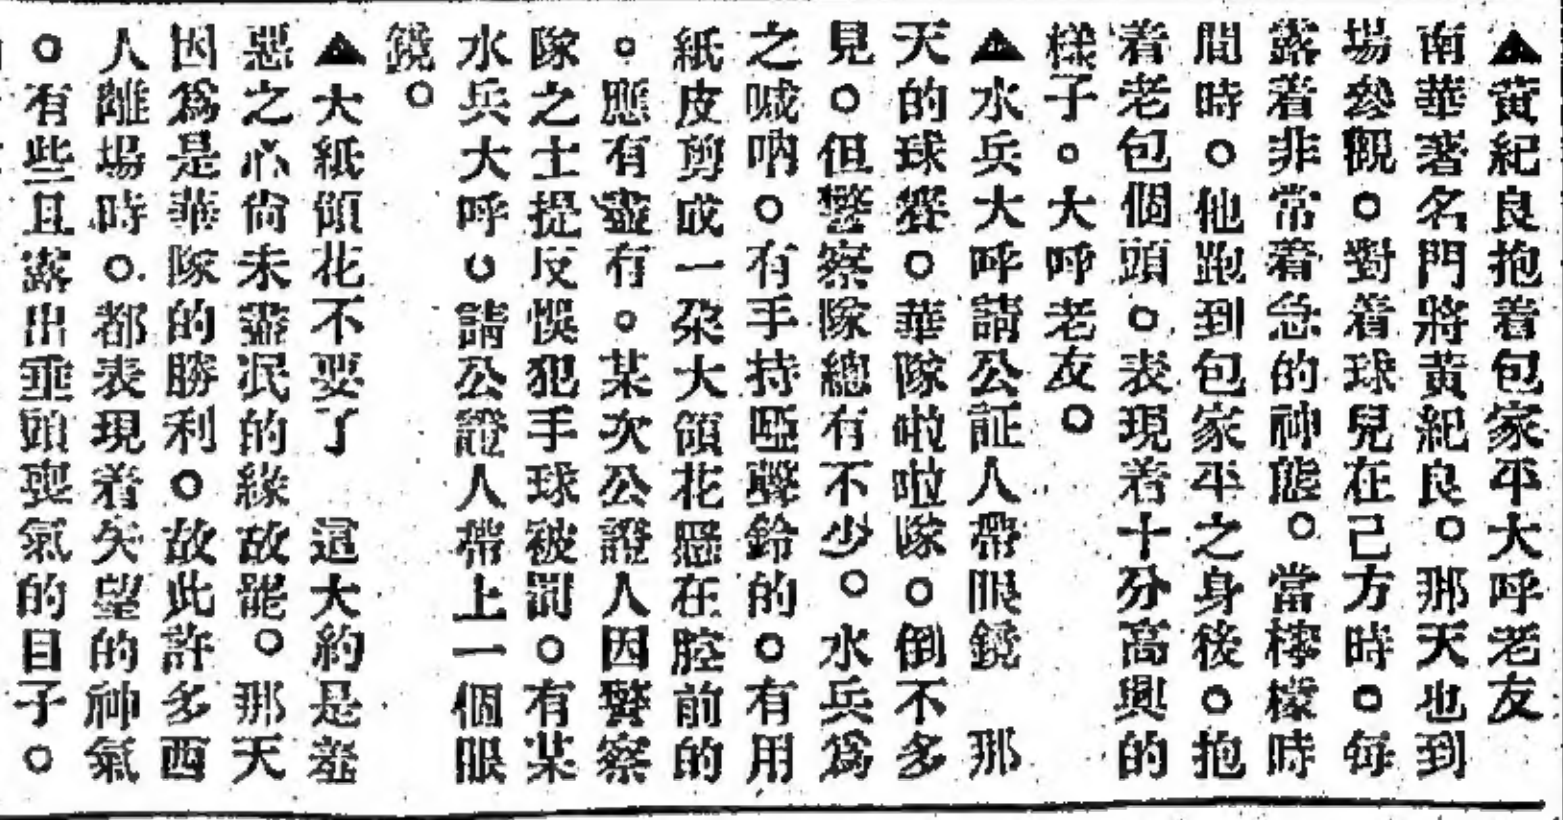 ▲黃紀良抱着包家平大呼老友
南華著名門將黃紀良。那天也到
場參觀。對着球兒在己方時。每
露着非常着急的神態。當檸檬時
間時。他跑到包家平之身後。抱
着老包個頭。表現着十分高興的
樣子。大呼老友。
▲水兵大呼請公証人帶眼鏡　那
天的球賽。華隊啦啦隊。倒不多
見。但警察隊總有不少。水兵爲
之喊吶。有手持啞聲鈴的。有用
紙皮剪成一朶大領花懸在腔前的
。應有盡有。某次公證人因警察
隊之士提反悞犯手球被罰。有某
水兵大呼。請公證人帶上一個眼
鏡。
▲大紙領花不要了　這大約是羞
惡之心尙未盡泯的緣故罷。那天
因爲是華隊的勝利。故此許多西
人離塲時。都表現着失望的神氣
。有些且露出垂頭喪氣的目子。